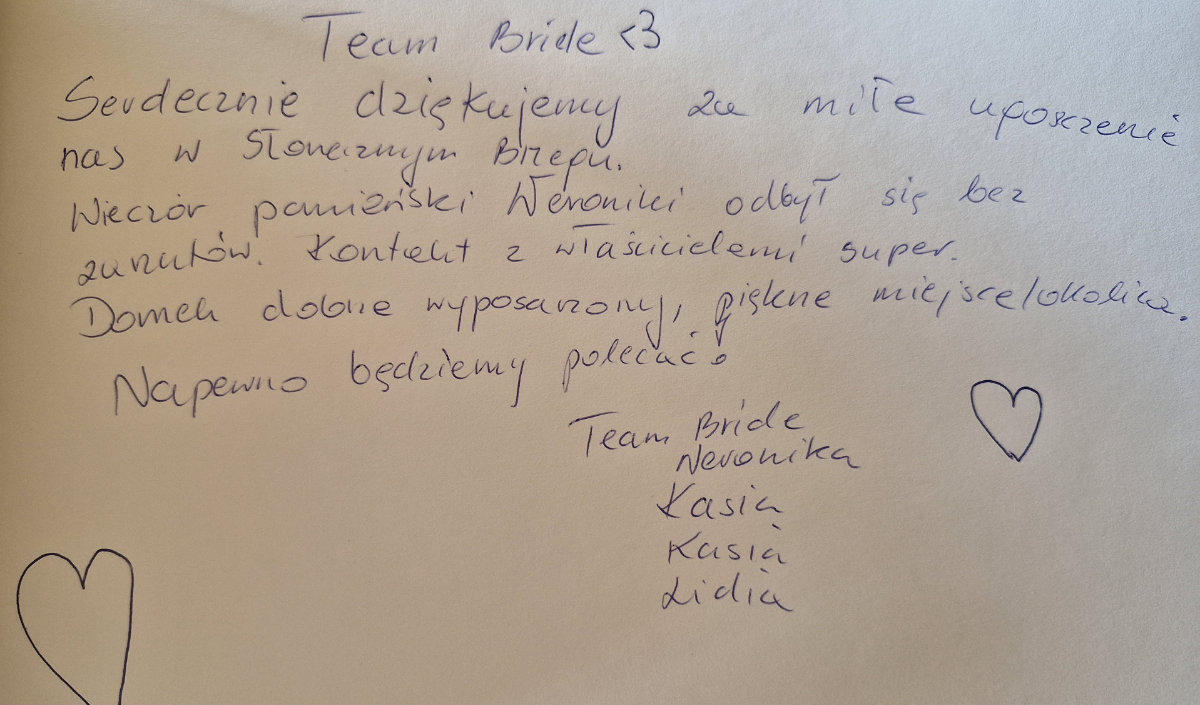 Team Bride <3
Serdecznie dziękujemy za miłe ugoszczenie
nas w Słonecznym Brzegu.
Wieczór panieński Weroniki odbył się bez
zarzutów. Kontakt z właścicielami super.
Domek dobrze wyposarzony, piękne miejsce/okolica.
Napewno będziemy polecać
Team Bride
Weronika
Kasia
Kasia
Lidia